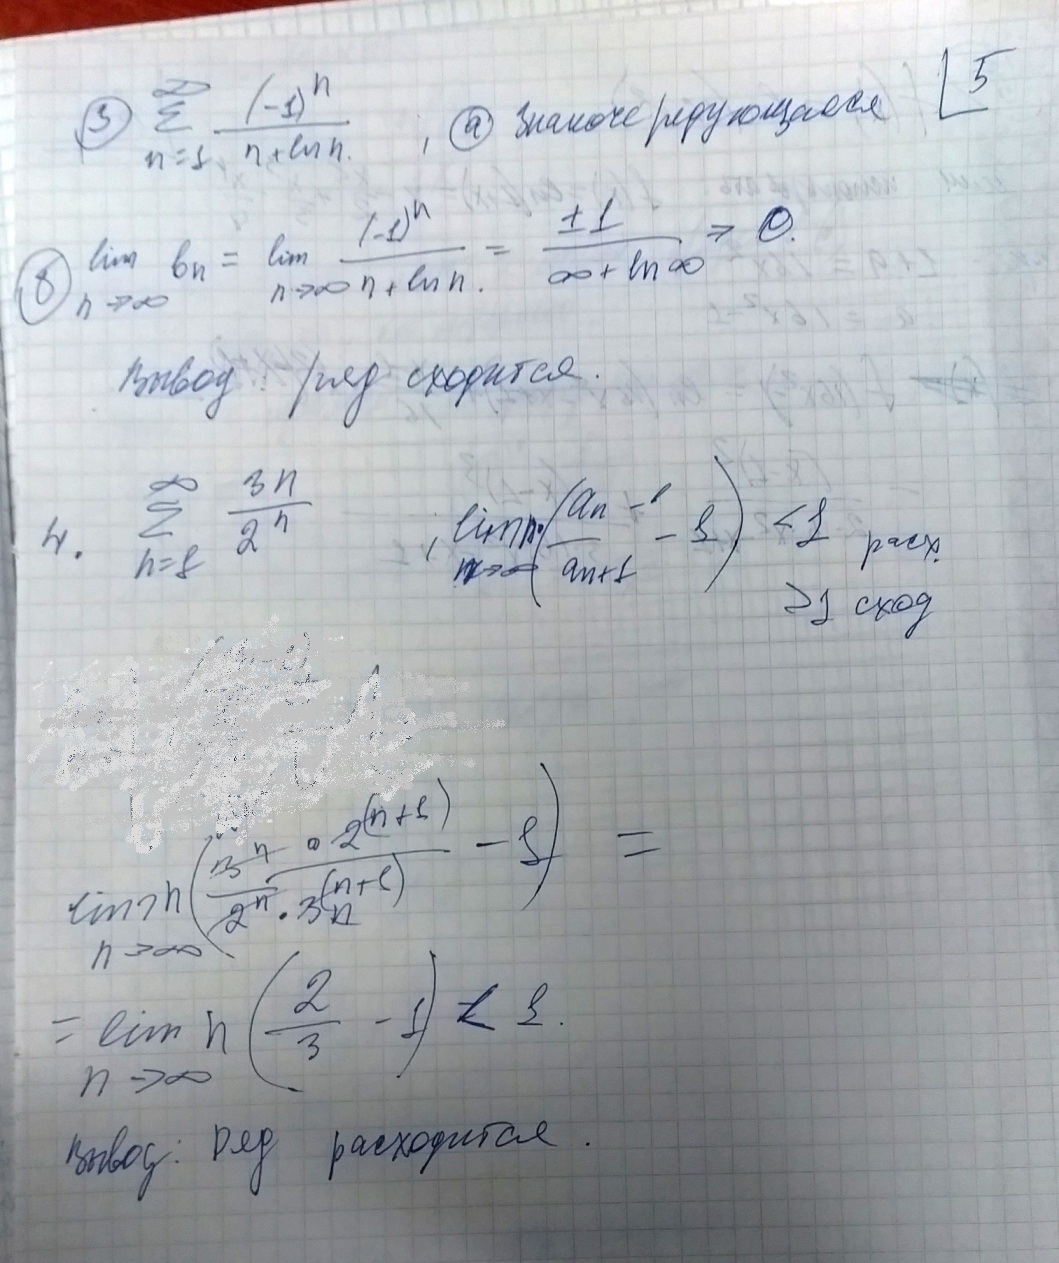 ⌊5
③ ∑_{n=1}^{∞} (-1)^n / (n+ln n) , ⓐ Знакочередующаяся
⑧ lim_{n→∞} b_n = lim_{n→∞} (-1)^n / (n+ln n.) = ±1 / (∞+ln ∞) ⇒ 0.
Вывод: ряд сходится.
4. ∑_{n=1}^{∞} 3n / 2^n , lim_{n→∞} n·(a_n / a_{n+1} - 1) <1 расх.
>1 сход
lim_{n→∞} n (3^n · 2^{(n+1)} / 2^n · 3^{(n+1)} - 1) =
= lim_{n→∞} n (2/3 - 1) < 1.
Вывод: Ряд расходится.